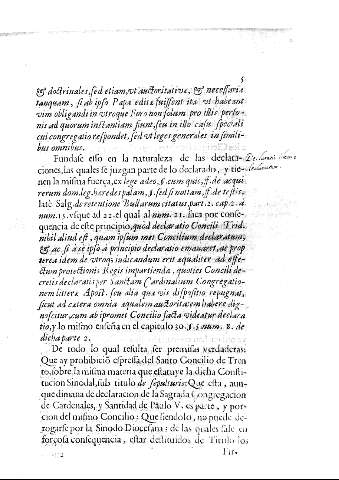 5
& doctrinales, sed etiam, ut auctoritativæ, & necessariæ
tanquam, si ab ipso Papa editæ fuissent ita ut habeant
vim obligandi in utroque Foro non solum pro illis perso-
nis ad quorum instantiam fiunt, seu in illo casu speciali
cui congregatio respondet, sed ut leges generales in simili-
bus omnibus.
Fundase esso en la naturaleza de las declara-
ciones, las quales se juzgan parte de lo declarado, y tie-
nen la misma fuerça, ex lege ades, §. cum quis, ff. de acqui
rerum dom. leg. heredes palam, §. sed si notam, ff. de testis.
latè Salg. de retentione Bullarum citatus, part. 2. cap. 2. à
num. 13. vsque ad 22. el qual al num. 21. saca por conse-
quencia de este principio, quod declaratio Concilij Trid.
nihil aliud est, quam ipsum met Concilium declaratum,
& ac si à se ipso à principio declaratio emanaret, ac prop
terea idem de utroque iudicandum erit æqualiter ad effe-
ctum protectionis Regis impartienda, quoties Concilij de-
cretis declaratis per Sanctam Cardinalium Congregatio-
nem litteræ Apost. seu alia quævis dispositio repugnat,
sicut ad cætera omnia æqualem auctoritatem habere dig-
noscetur, cum ab ipso met Concilio facta videatur declara
tio, y lo mismo enseña en el capitulo 30. §. 5. num. 8. de
dicha parte 2.
De todo lo qual resulta ser premissas verdaderas:
Que ay prohibicion espressa del Santo Concilio de Tren
to, sobre la misma materia que estatuye la dicha Consti-
tucion Sinodal, sub titulo de sepulturis: Que esta, aun-
que dimana de declaracion de la Sagrada Congregacion
de Cardenales, y Santidad de Paulo V. es parte, y por-
cion del mismo Concilio: Que siendolo, no puede de-
rogarse por la Sinodo Diocesana: de las quales sale en
forçosa consequencia, estar destituidos de Titulo los